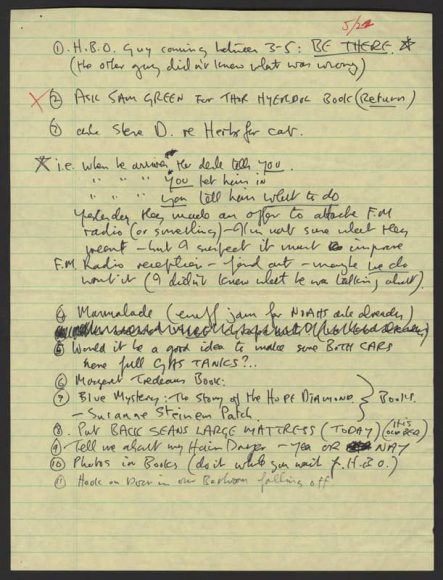 5/22
① H.B.O. Guy coming between 3-5: BE THERE *
(the other guy didn't know what was wrong)
X ② ASK SAM GREEN FOR THOR HYERDOL BOOK (Return)
③ ask Steve D. re Herbs for cat.
* i.e. when he arrives the desk tells YOU.
" " " " YOU let him in
" " " " YOU tell him what to do
Yesterday they made an offer to attache F.M
radio (or something) – I'm not sure what they
meant – but I suspect it must improve
F.M Radio reception – find out – maybe we do
want it (I didn't know what he was talking about).
④ Marmalade (enuff jam for NOAHS arc already)
⑤ Would it be a good idea to make sure BOTH CARS
have full GAS TANKS?..
⑥ Margaret Trudeau Book.
⑦ Blue Mystery: The Story of the HOPE DIAMOND } Books.
– Susanne Steinem Patch.
⑧ PUT BACK SEANS LARGE MATTRESS (TODAY) (it is
⑨ Tell me about my Hair Dryer – yea OR NAY
⑩ Photos in Books (do it while you wait f. H.B.O.)
⑪ Hook on Door in our Bathroom falling off